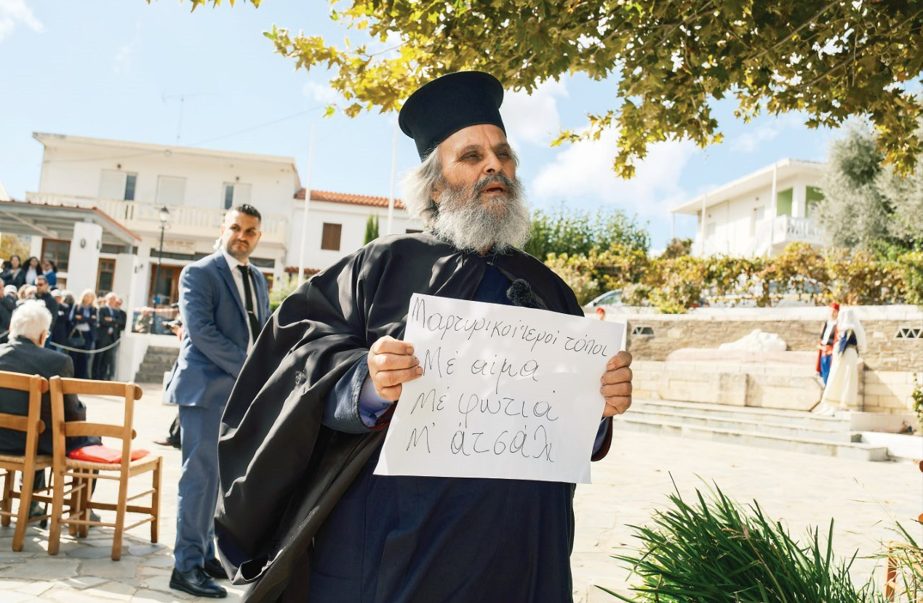 Μαρτυρικοί ἱεροί τόποι
Μέ αίμα
Μέ φωτιά
Μ' ἀτσάλι